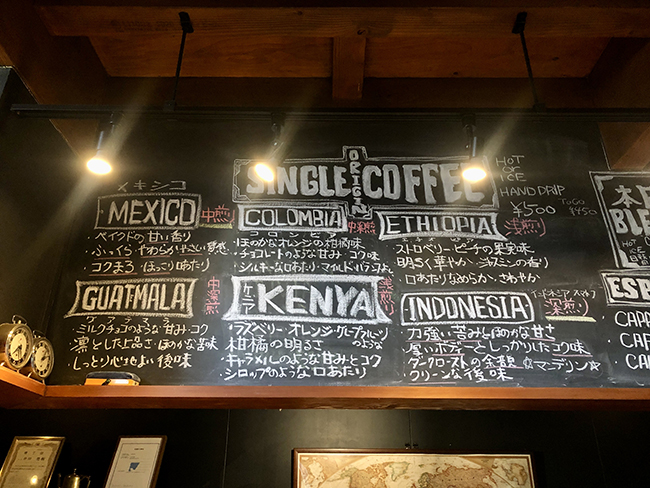 SINGLE ORIGIN COFFEE
HOT
OR
ICE
HAND DRIP
¥500
TO GO
¥450
メキシコ
MEXICO 中煎
ベイクドの甘い香り
・コクまろ ほっこり口あたり
COLOMBIA 中深煎
コロンビア
ほのかなオレンジの柑橘味
・チョコレートのような甘み コク味
・シルキーな口あたり・マイルドバランス
ETHIOPIA 浅煎り
ストロベリー・ピーチの果実味
明るく華やか・ジャスミンの香り
口あたりなめらか、さわやか
GUATEMALA 中深煎
グアテマラ
・ミルクチョコのような甘み・コク
・凛とした上品さ・ほのかな苦味
・しっとり心地よい後味
ケニア
KENYA 浅煎
・ラズベリー・オレンジ・グレープフルーツのような
柑橘の明るさ
・キャラメルのような甘みとコク
・シロップのような口あたり
INDONESIA
深煎り
・力強い苦みとほのかな甘さ
・厚いボディーとしっかりしたコク味
・ダークローストの金額 ☆マンデリン☆
・クリーンな後味
BLE
ESP
CAPP
CAF
CA